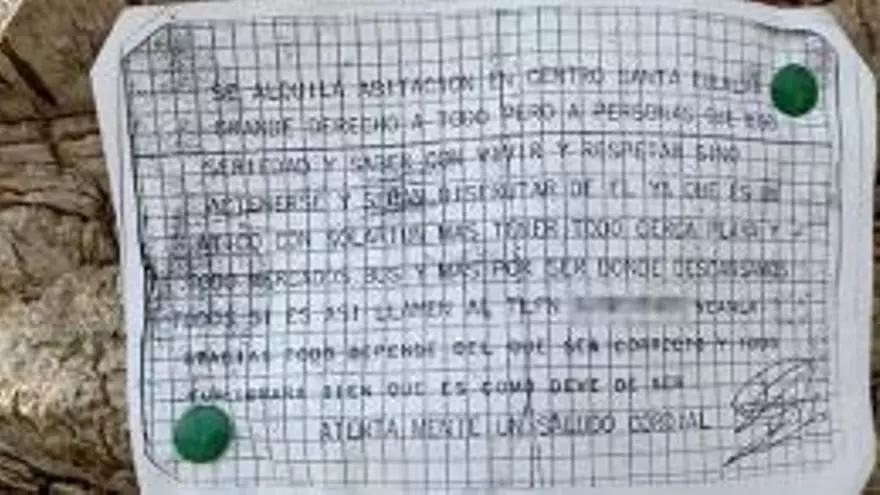 SE ALQUILA ABITACION EN CENTRO SANTA EULALIA
GRANDE DERECHO A TODO PERO A PERSONAS QUE
SERIEDAD Y SABER CON VIVIR Y RESPETAR SINO
ACTENERSE Y DISFRUTAR DE EL YA QUE ES
ATICO CON MAS TENER TODO CERCA PLAYA Y
TODO MERCADOS BUS Y MAS POR SER DONDE DESCANSAMOS
TODOS SI ES ASI LLAMEN AL TLFN
GRACIAS TODO DEPENDE DEL QUE SEA CORRECTO Y TODO
FUNCIONARA BIEN QUE ES COMO DEVE DE SER
ATENTA MENTE UN SALUDO CORDIAL